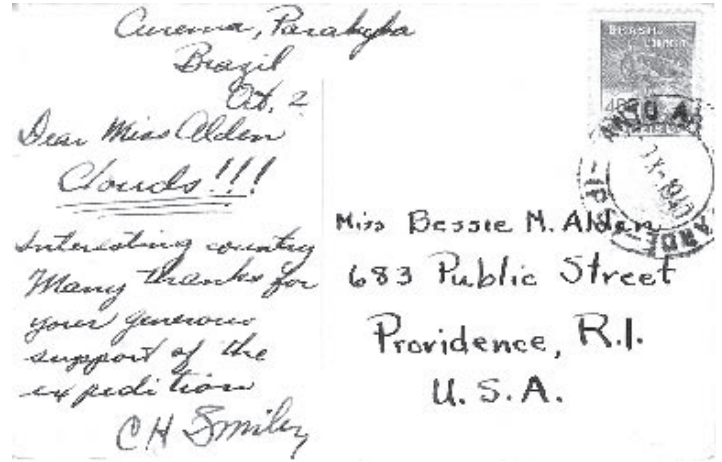 Curema, Parahyba
Brazil
Oct. 2
Dear Miss Alden
Clouds!!!
Interesting country
Many thanks for
your generous
support of the
expedition
C H Smiley
BRASIL
Miss Bessie M. Alden
683 Public Street
Providence, R.I.
U. S. A.